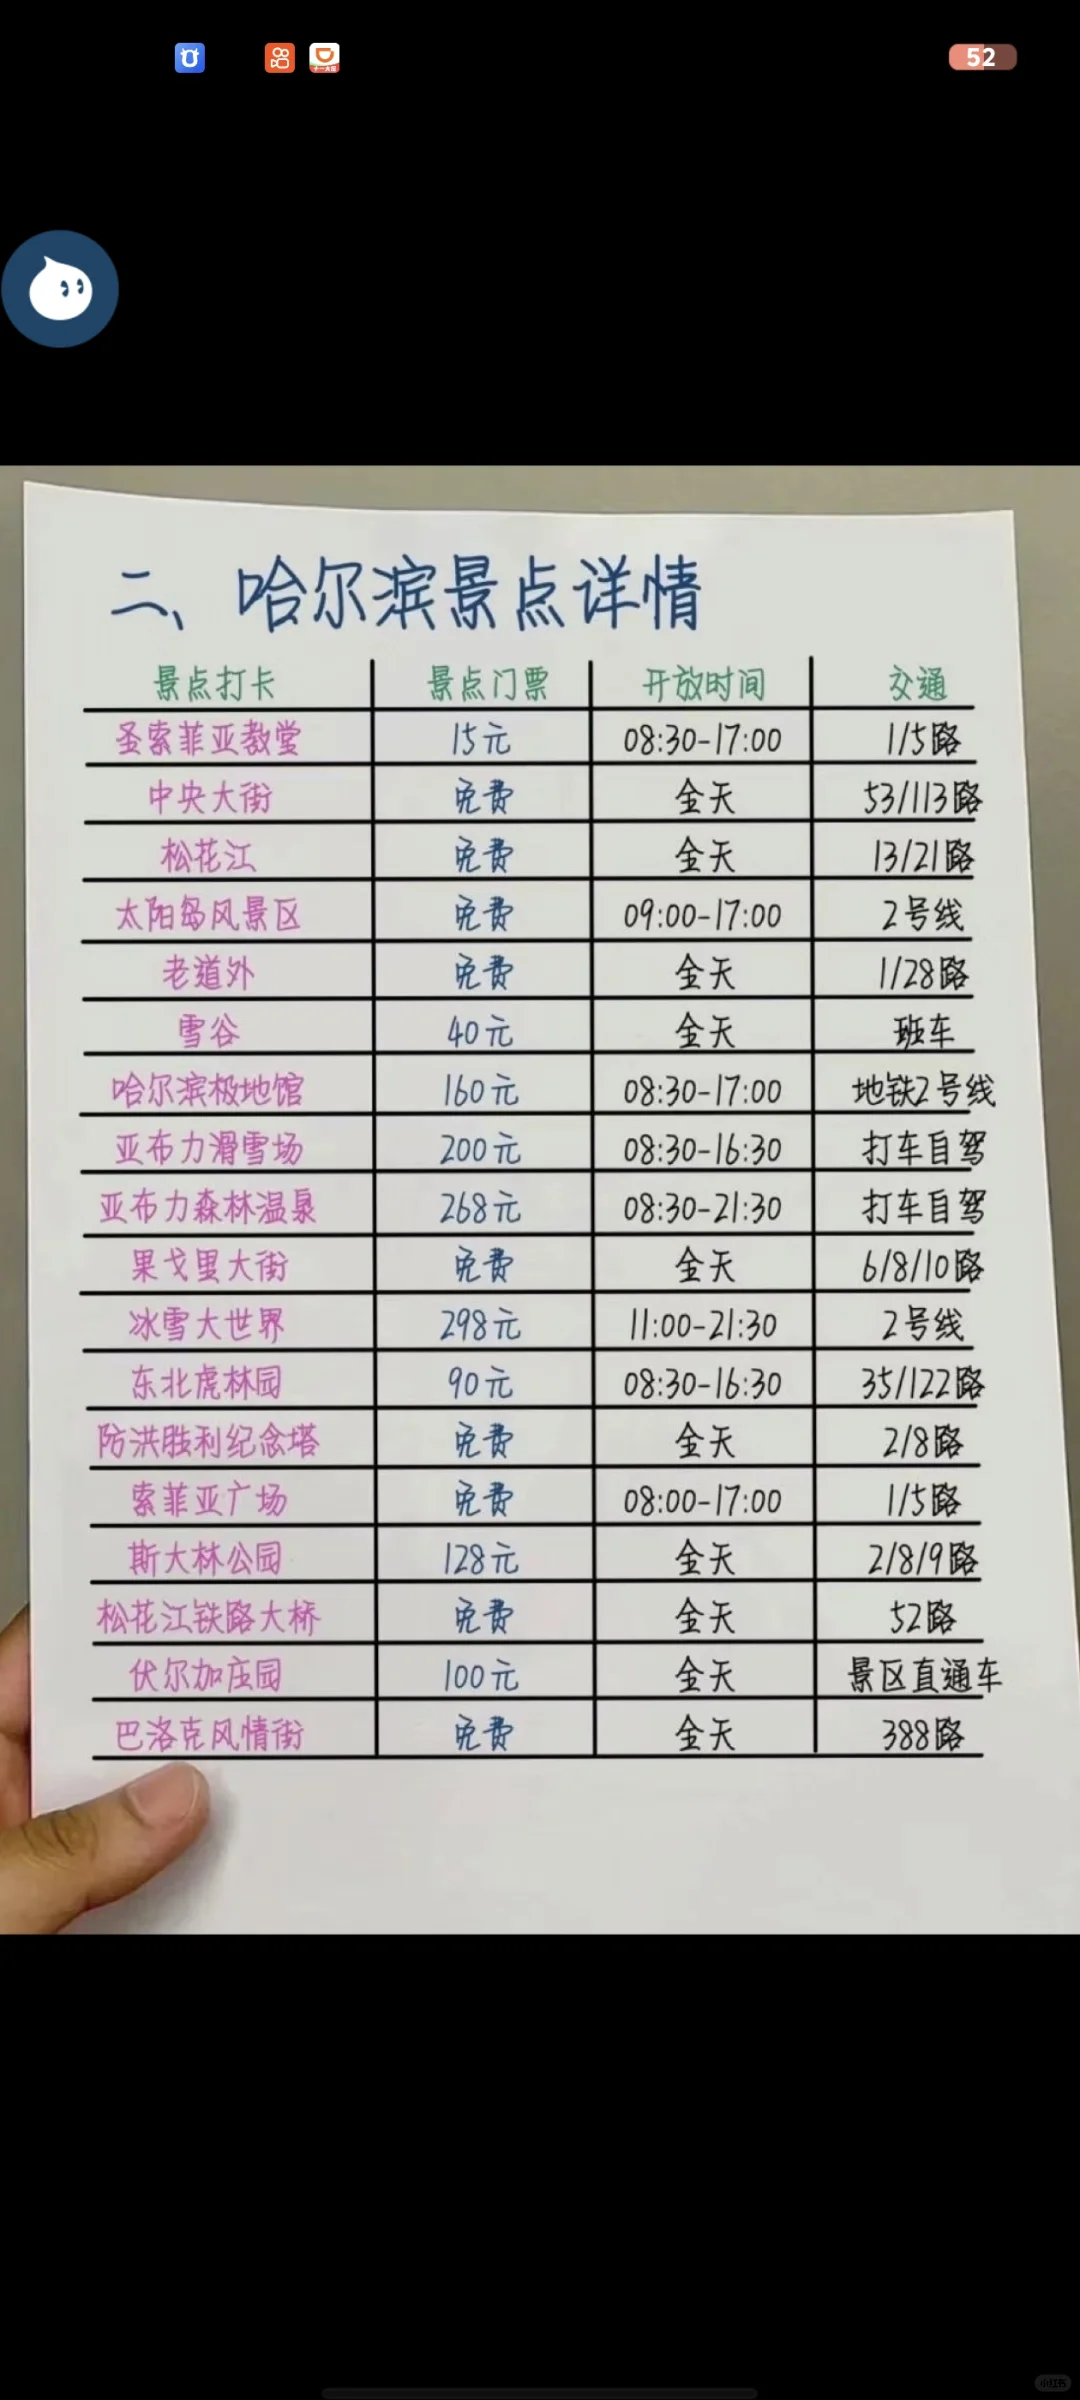 52
二、哈尔滨景点详情
景点打卡 景点门票 开放时间 交通
圣索菲亚教堂 15元 08:30-17:00 1/5路
中央大街 免费 全天 53/113路
松花江 免费 全天 13/21路
太阳岛风景区 免费 09:00-17:00 2号线
老道外 免费 全天 1/28路
雪谷 40元 全天 班车
哈尔滨极地馆 160元 08:30-17:00 地铁2号线
亚布力滑雪场 200元 08:30-16:30 打车自驾
亚布力森林温泉 268元 08:30-21:30 打车自驾
果戈里大街 免费 全天 6/8/10路
冰雪大世界 298元 11:00-21:30 2号线
东北虎林园 90元 08:30-16:30 35/122路
防洪胜利纪念塔 免费 全天 2/8路
索菲亚广场 免费 08:00-17:00 1/5路
斯大林公园 128元 全天 2/8/9路
松花江铁路大桥 免费 全天 52路
伏尔加庄园 100元 全天 景区直通车
巴洛克风情街 免费 全天 388路
小红书